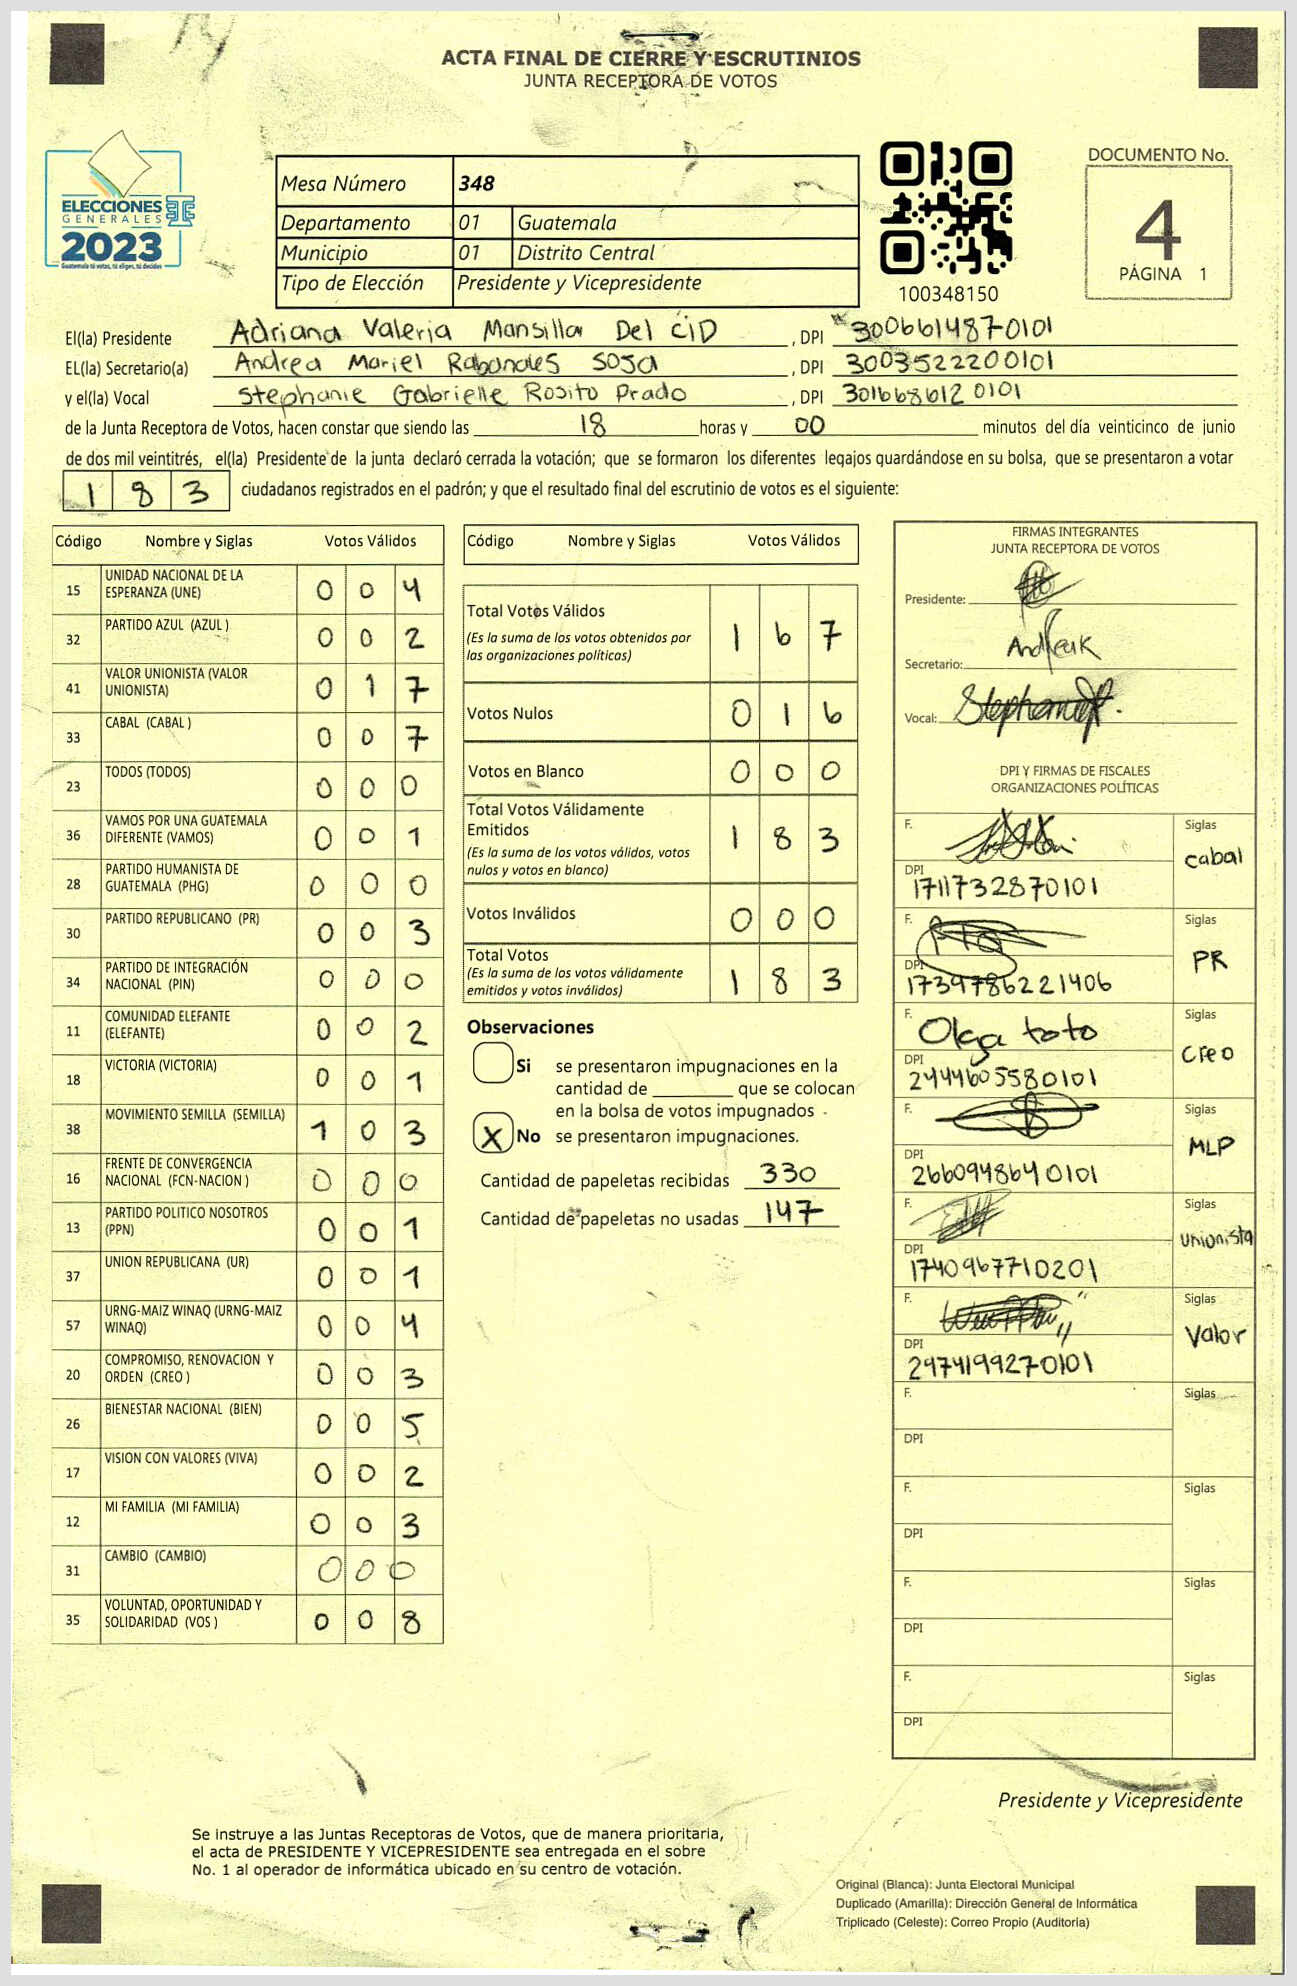 ACTA FINAL DE CIERRE Y ESCRUTINIOS
JUNTA RECEPTORA DE VOTOS
ELECCIONES
GENERALES
2023
Guatemala tú votas, tú eliges, tú decides
Mesa Número 348
Departamento 01 Guatemala
Municipio 01 Distrito Central
Tipo de Elección Presidente y Vicepresidente
100348150
DOCUMENTO No.
4
PÁGINA 1
El(la) Presidente Adriana Valeria Mansilla Del CiD , DPI 3006614870101
EL(la) Secretario(a) Andrea Mariel Rabanales SOSA , DPI 3003522200101
y el(la) Vocal Stephanie Gabrielle Rosito Prado , DPI 3016686120101
de la Junta Receptora de Votos, hacen constar que siendo las 18 horas y 00 minutos del día veinticinco de junio
de dos mil veintitrés, el(la) Presidente de la junta declaró cerrada la votación; que se formaron los diferentes legajos guardándose en su bolsa, que se presentaron a votar
183 ciudadanos registrados en el padrón; y que el resultado final del escrutinio de votos es el siguiente:
Código Nombre y Siglas Votos Válidos
15 UNIDAD NACIONAL DE LA ESPERANZA (UNE) 0 0 4
32 PARTIDO AZUL (AZUL ) 0 0 2
41 VALOR UNIONISTA (VALOR UNIONISTA) 0 1 7
33 CABAL (CABAL ) 0 0 7
23 TODOS (TODOS) 0 0 0
36 VAMOS POR UNA GUATEMALA DIFERENTE (VAMOS) 0 0 1
28 PARTIDO HUMANISTA DE GUATEMALA (PHG) 0 0 0
30 PARTIDO REPUBLICANO (PR) 0 0 3
34 PARTIDO DE INTEGRACIÓN NACIONAL (PIN) 0 0 0
11 COMUNIDAD ELEFANTE (ELEFANTE) 0 0 2
18 VICTORIA (VICTORIA) 0 0 1
38 MOVIMIENTO SEMILLA (SEMILLA) 1 0 3
16 FRENTE DE CONVERGENCIA NACIONAL (FCN-NACION ) 0 0 0
13 PARTIDO POLITICO NOSOTROS (PPN) 0 0 1
37 UNION REPUBLICANA (UR) 0 0 1
57 URNG-MAIZ WINAQ (URNG-MAIZ WINAQ) 0 0 4
20 COMPROMISO, RENOVACION Y ORDEN (CREO ) 0 0 3
26 BIENESTAR NACIONAL (BIEN) 0 0 5
17 VISION CON VALORES (VIVA) 0 0 2
12 MI FAMILIA (MI FAMILIA) 0 0 3
31 CAMBIO (CAMBIO) 0 0 0
35 VOLUNTAD, OPORTUNIDAD Y SOLIDARIDAD (VOS ) 0 0 8
Código Nombre y Siglas Votos Válidos
Total Votos Válidos 1 6 7
(Es la suma de los votos obtenidos por
las organizaciones políticas)
Votos Nulos 0 1 6
Votos en Blanco 0 0 0
Total Votos Válidamente
Emitidos 1 8 3
(Es la suma de los votos válidos, votos
nulos y votos en blanco)
Votos Inválidos 0 0 0
Total Votos 1 8 3
(Es la suma de los votos válidamente
emitidos y votos inválidos)
Observaciones
Si se presentaron impugnaciones en la
cantidad de ________ que se colocan
en la bolsa de votos impugnados
X No se presentaron impugnaciones.
Cantidad de papeletas recibidas 330
Cantidad de papeletas no usadas 147
FIRMAS INTEGRANTES
JUNTA RECEPTORA DE VOTOS
Presidente:
Secretario:
Vocal:
DPI Y FIRMAS DE FISCALES
ORGANIZACIONES POLÍTICAS
F. Siglas cabal
DPI 1711732870101
F. Siglas PR
DPI 1739786221406
F. Olga toto Siglas Creo
DPI 2444605580101
F. Siglas MLP
DPI 2660948640101
F. Siglas unionista
DPI 1740967710201
F. Siglas Valor
DPI 2974199270101
F. Siglas
DPI
F. Siglas
DPI
F. Siglas
DPI
F. Siglas
DPI
Presidente y Vicepresidente
Se instruye a las Juntas Receptoras de Votos, que de manera prioritaria,
el acta de PRESIDENTE Y VICEPRESIDENTE sea entregada en el sobre
No. 1 al operador de informática ubicado en su centro de votación.
Original (Blanca): Junta Electoral Municipal
Duplicado (Amarilla): Dirección General de Informática
Triplicado (Celeste): Correo Propio (Auditoria)